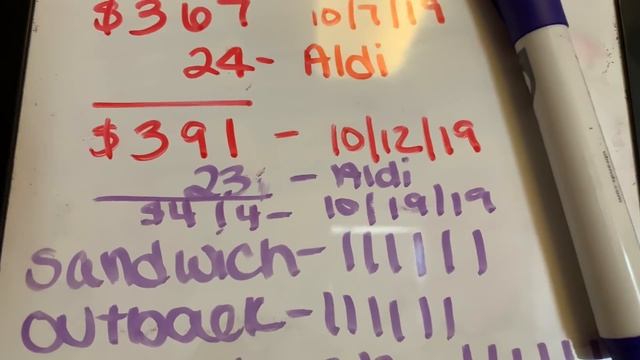 $367 10/7/19
24- Aldi
$391 - 10/12/19
23 - Aldi
$414- 10/19/19
Sandwich- IIIIII
Outback- IIIIII